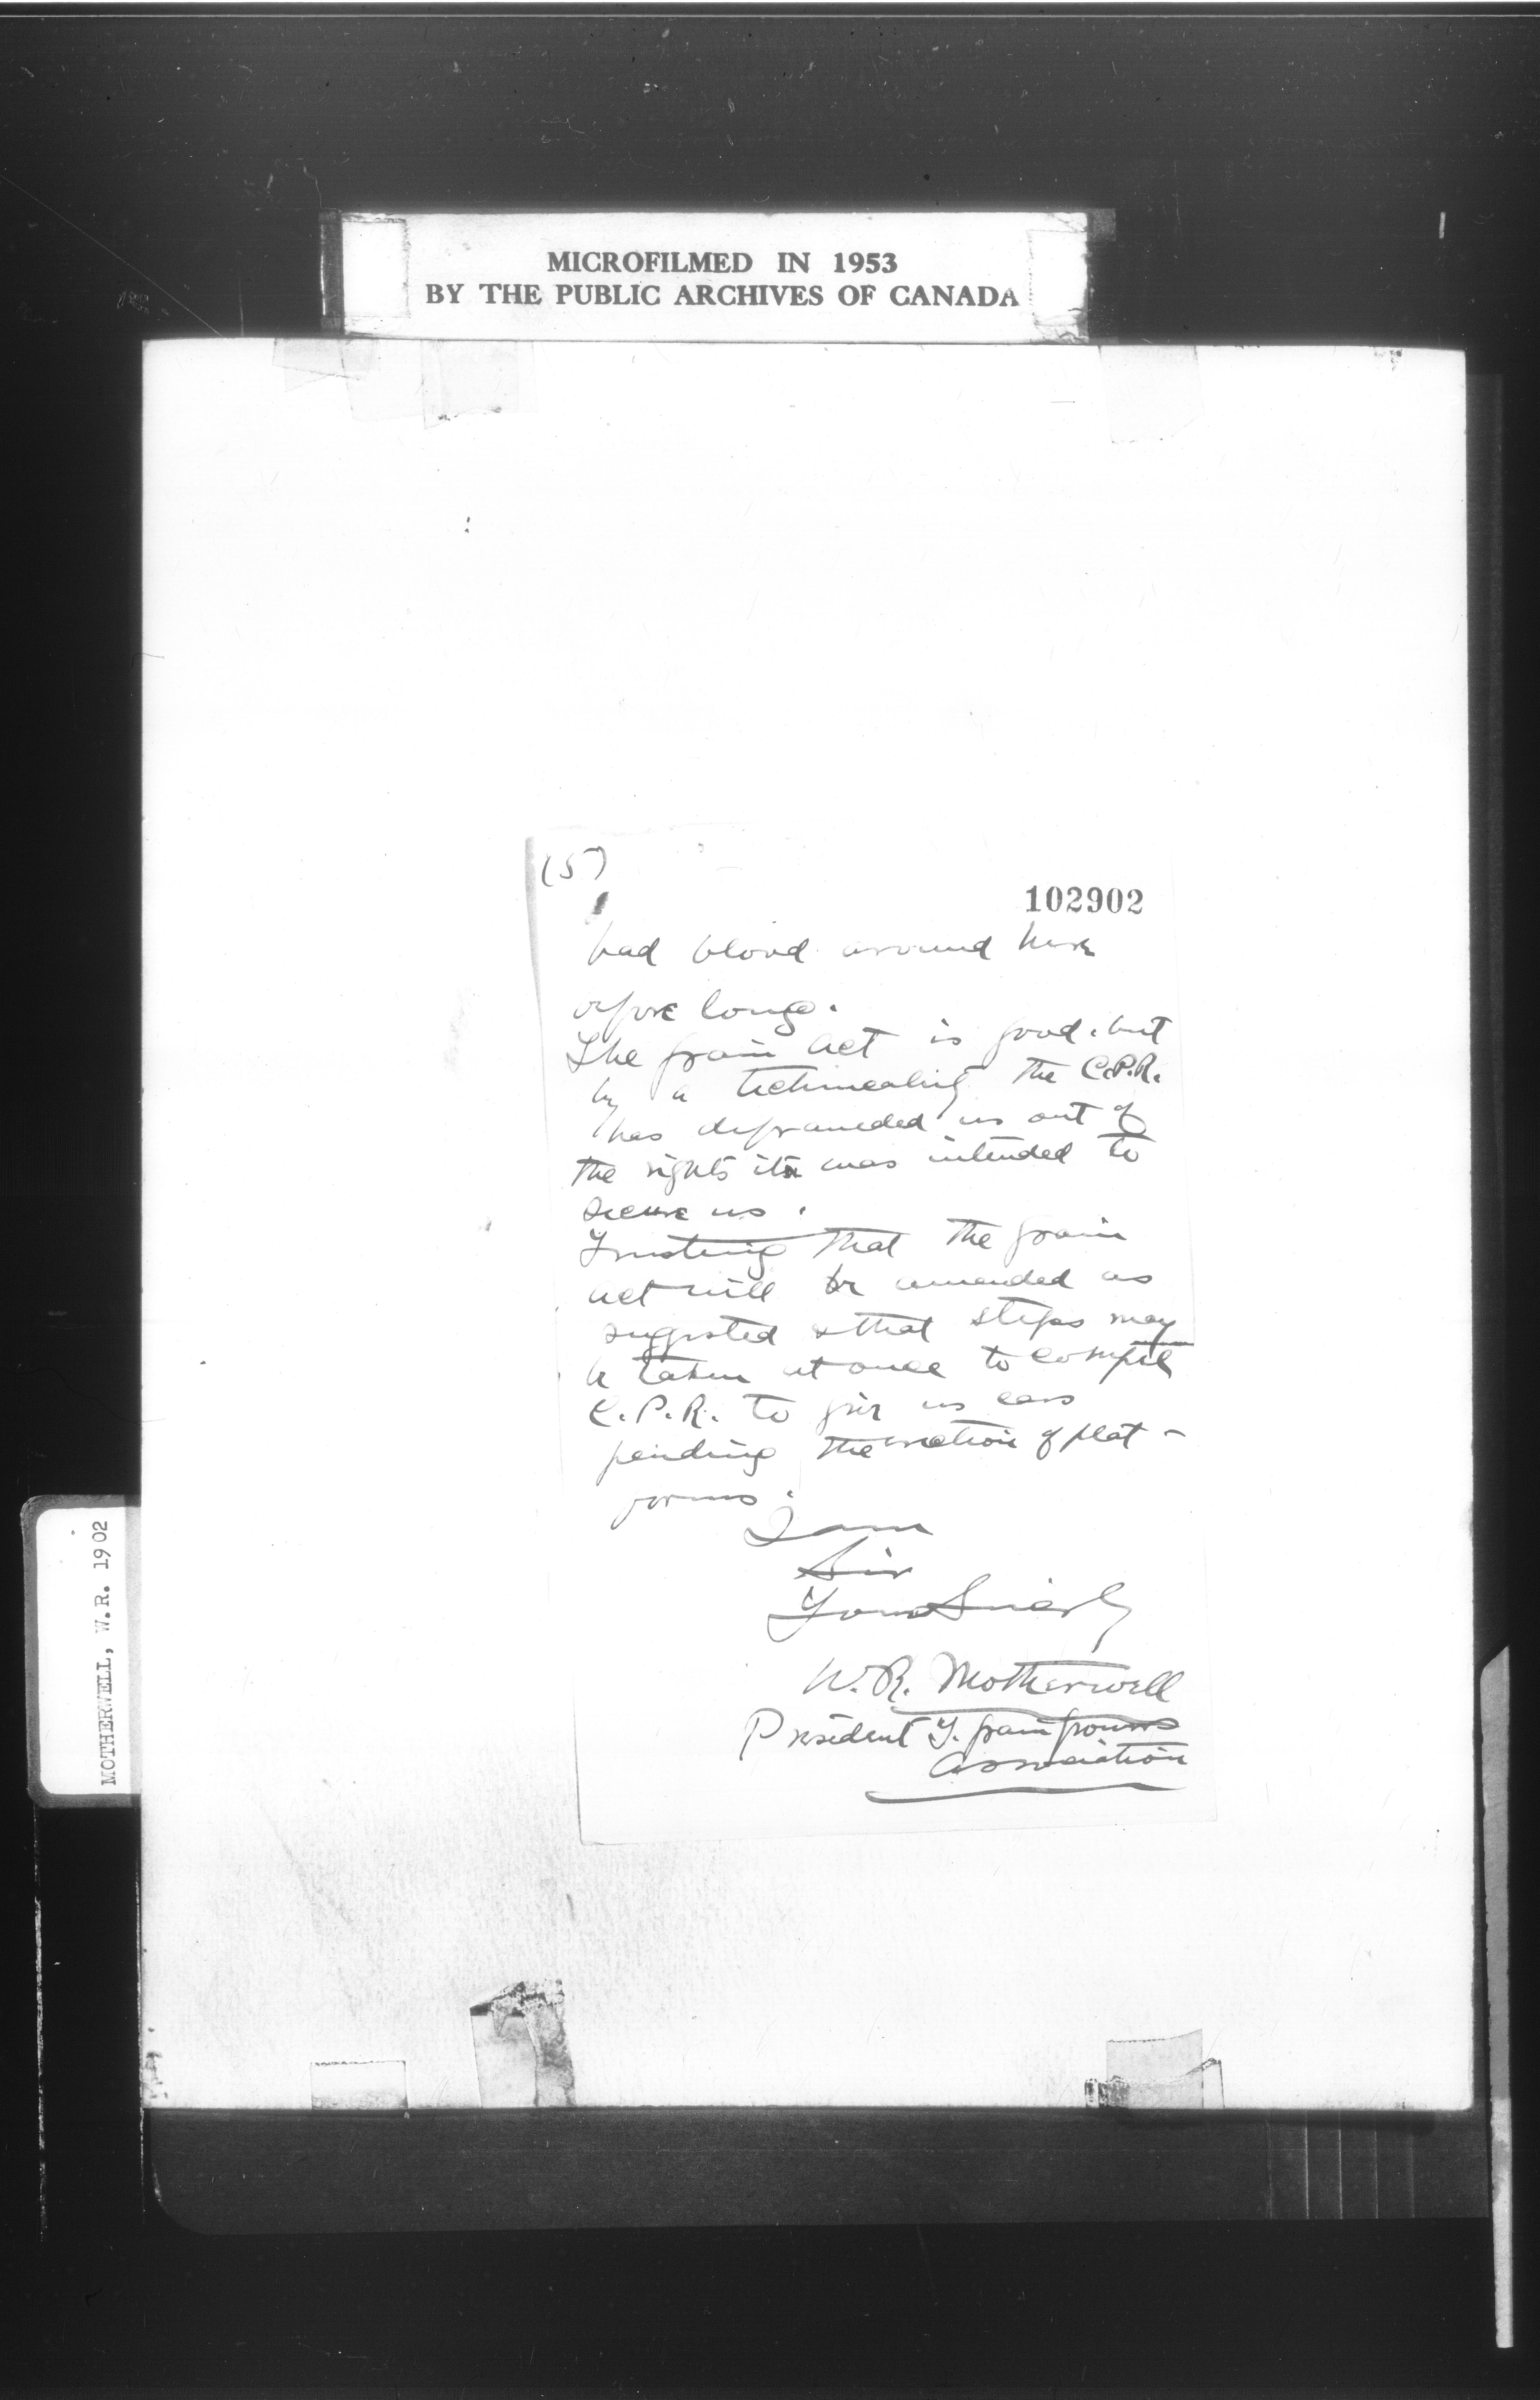 MICROFILMED IN 1953
BY THE PUBLIC ARCHIVES OF CANADA
(5)
102902
bad blood around here
before long.
The grain act is good. but
by a technicality the C.P.R.
has defrauded us out of
the rights it was intended to
secure us.
Trusting that the grain
act will be amended as
suggested & that steps may
be taken at once to compel
C.P.R. to give us cars
pending the erection of plat-
forms.
I am
Sir
Yours
W.R. Motherwell
President T. grain growers
Association
MOTHERWELL, W.R. 1902